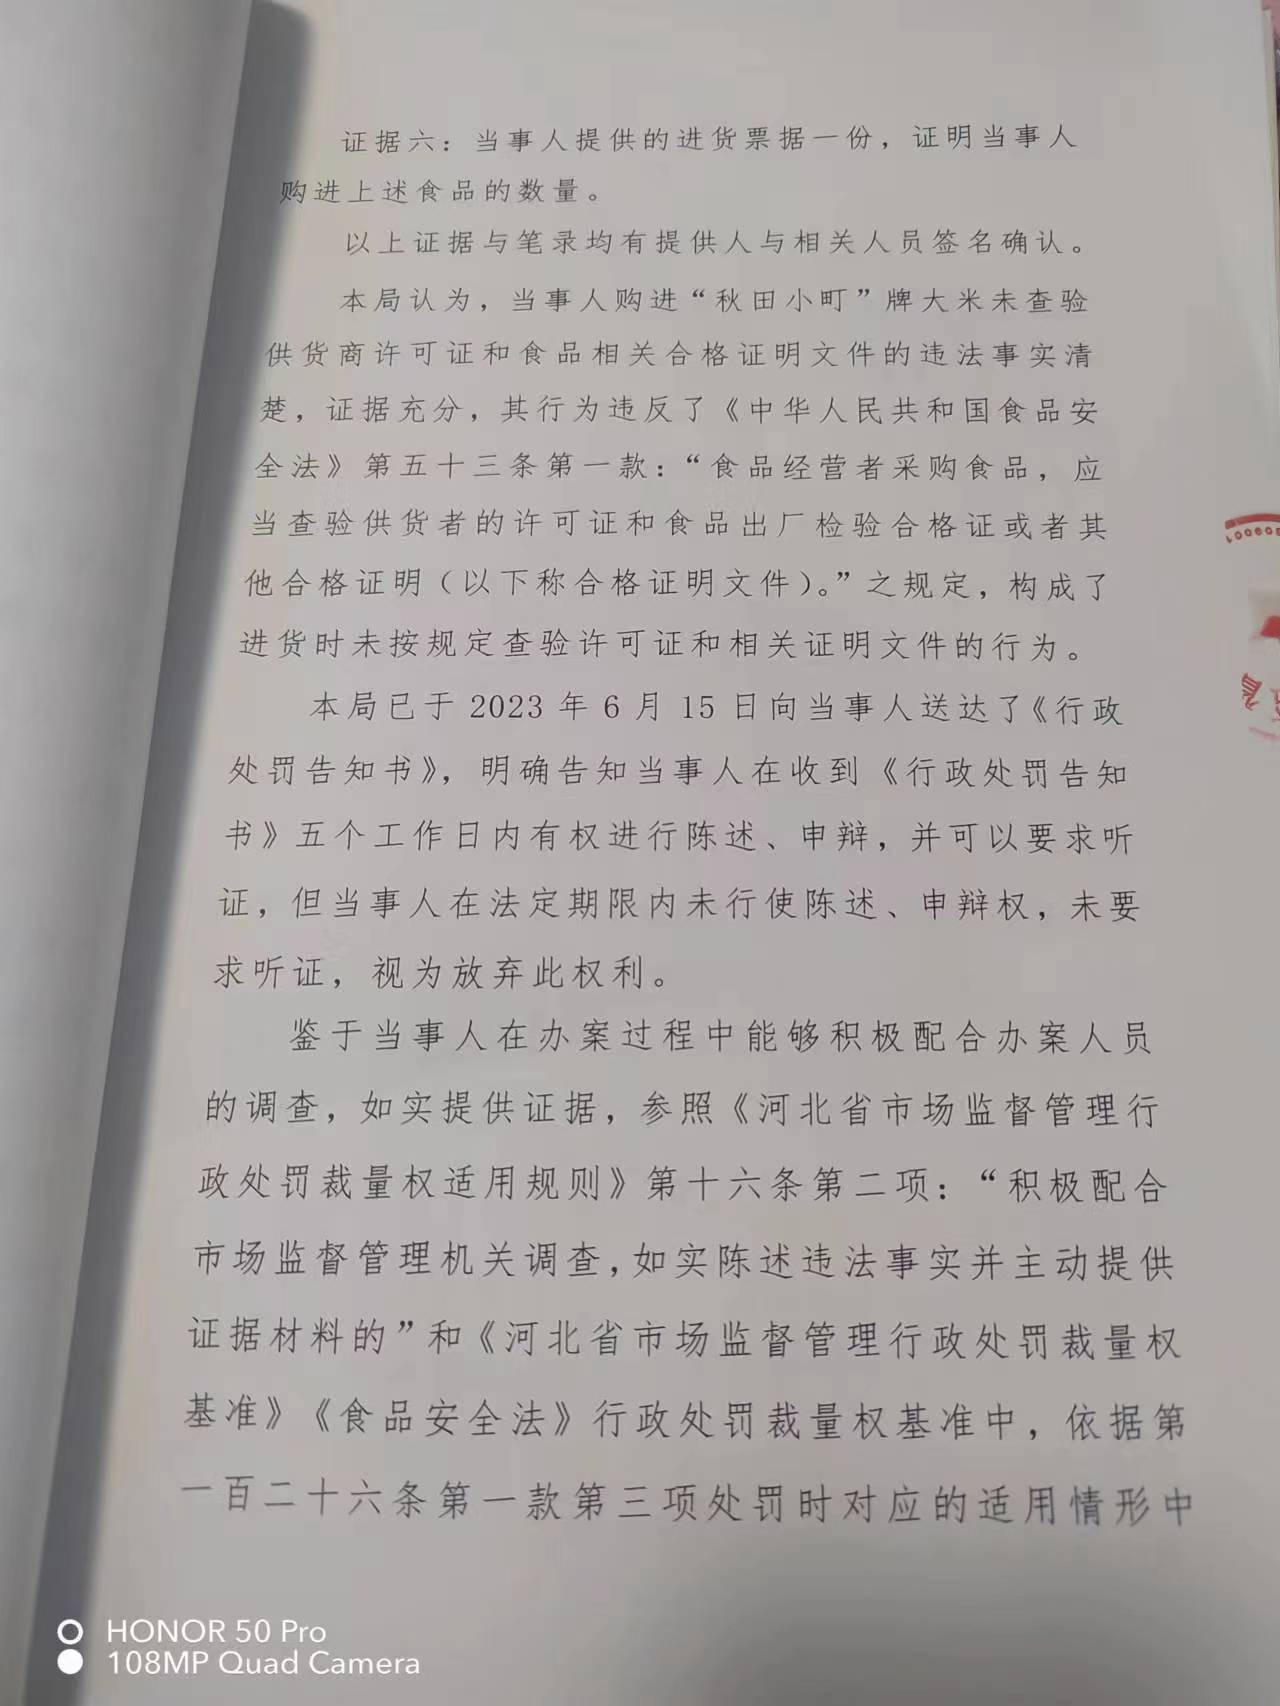 证据六：当事人提供的进货票据一份，证明当事人
购进上述食品的数量。
以上证据与笔录均有提供人与相关人员签名确认。
本局认为，当事人购进“秋田小町”牌大米未查验
供货商许可证和食品相关合格证明文件的违法事实清
楚，证据充分，其行为违反了《中华人民共和国食品安
全法》第五十三条第一款：“食品经营者采购食品，应
当查验供货者的许可证和食品出厂检验合格证或者其
他合格证明（以下称合格证明文件）。”之规定，构成了
进货时未按规定查验许可证和相关证明文件的行为。
本局已于 2023 年 6 月 15 日向当事人送达了《行政
处罚告知书》，明确告知当事人在收到《行政处罚告知
书》五个工作日内有权进行陈述、申辩，并可以要求听
证，但当事人在法定期限内未行使陈述、申辩权，未要
求听证，视为放弃此权利。
鉴于当事人在办案过程中能够积极配合办案人员
的调查，如实提供证据，参照《河北省市场监督管理行
政处罚裁量权适用规则》第十六条第二项：“积极配合
市场监督管理机关调查，如实陈述违法事实并主动提供
证据材料的”和《河北省市场监督管理行政处罚裁量权
基准》《食品安全法》行政处罚裁量权基准中，依据第
一百二十六条第一款第三项处罚时对应的适用情形中
HONOR 50 Pro
108MP Quad Camera